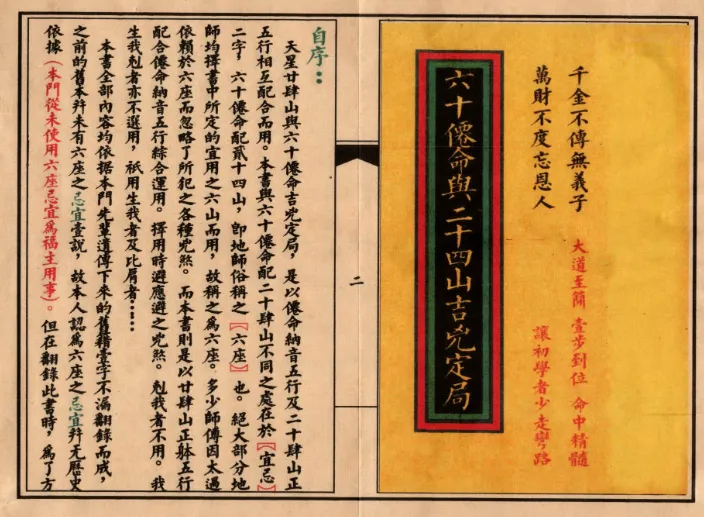 千金不傳無義子
萬財不度忘恩人
大道至簡 壹步到位 命中精髓
讓初學者少走彎路
六十僊命與二十四山吉兇定局
二
自序：：
天星廿肆山與六十僊命吉兇定局，是以僊命納音五行及二十肆山正
五行相互配合而用。本書與六十僊命配二十肆山不同之處在於【宜忌】
二字，六十僊命配貳十四山，卽地師俗稱之【六座】也。絕大部分地
師均擇書中所定的宜用之六山而用，故稱之爲六座。多少師傅因太過
依賴於六座而忽略了所犯之各種兇煞。而本書則是以廿肆山正躰五行
配合僊命納音五行綜合運用。擇用時避應避之兇煞。剋我者不用。我
生我剋者亦不選用，衹用生我者及比肩者……
本書全部內容均依据本門先輩遺傳下來的舊籍壹字不漏翻錄而成，
之前的舊本幷未有六座之忌宜壹說，故本人認爲六座之忌宜幷无歷史
依據（本門從未使用六座忌宜爲福主用事）。但在翻錄此書時，爲了方